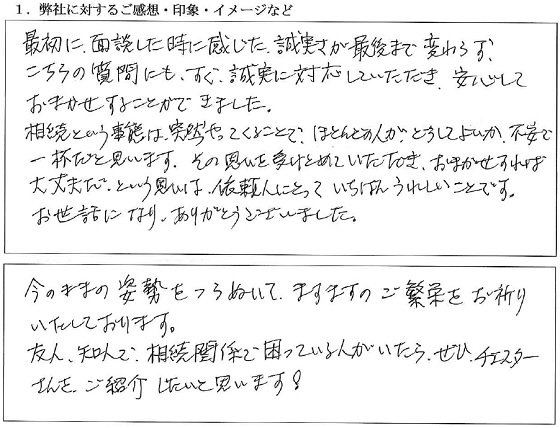 1．弊社に対するご感想・印象・イメージなど
最初に、面談した時に感じた、誠実さが最後まで変わらず、
こちらの質問にも、すぐ、誠実に対応していただき、安心して
おまかせすることができました。
相続という事態は、突然やってくることで、ほとんどの人が、どうしてよいか、不安で
一杯だと思います。その思いを受けとめていただき、おまかせすれば
大丈夫だ、という思いは、依頼人にとって いちばん うれしいことです。
お世話になり、ありがとうございました。
今のままの姿勢をつらぬいて、ますますの ご繁栄を お祈り
いたしております。
友人、知人で、相続関係で困っている人がいたら、ぜひ、チェスター
さんを、ご紹介したいと思います！